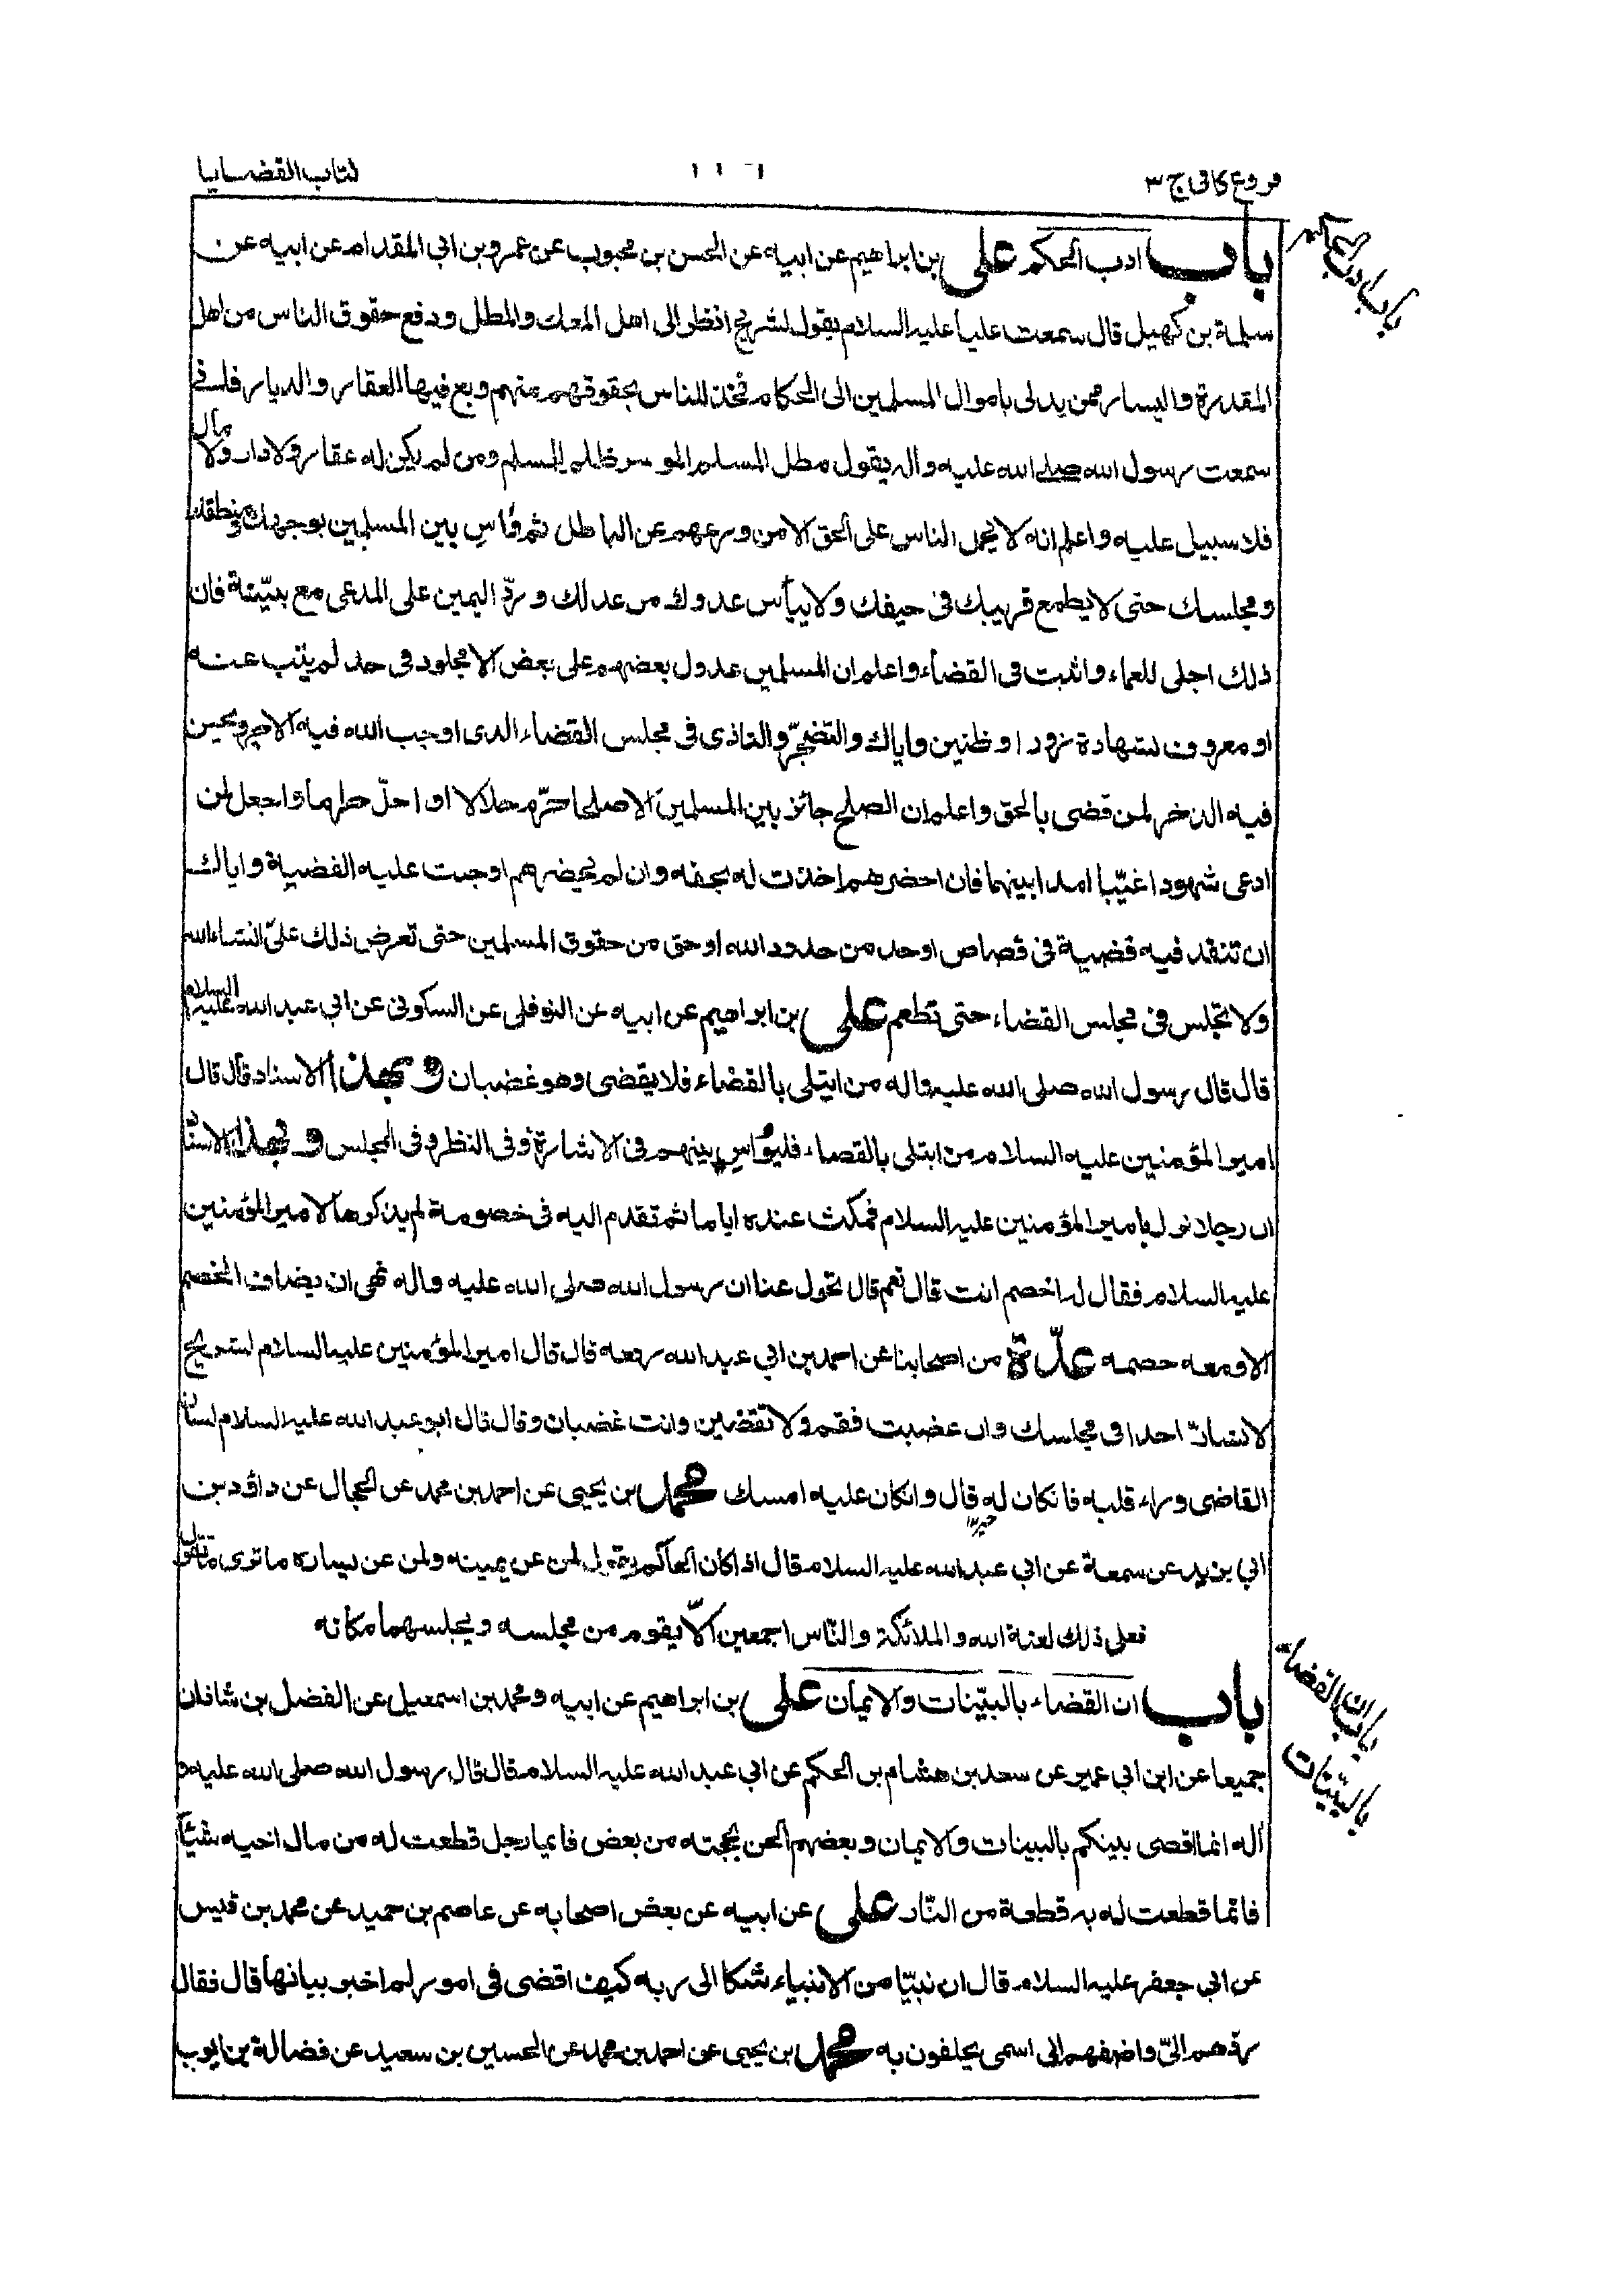 فروع كافى ج ٣
كتاب القضايا
باب ادب الحكم على بن ابراهيم عن ابيه عن الحسن بن محبوب عن عمرو بن ابى المقدام عن ابيه عن
باب ادب الحكم
سلمة بن كهيل قال سمعت عليا عليه السلام يقول لشريح انظر الى اهل المعك والمطل ودفع حقوق الناس من اهل
المقدرة واليسار ممن يدلى باموال المسلمين الى الحكام فخذ للناس بحقوقهم منهم وبع فيها العقار والديار فانى
سمعت رسول الله صلى الله عليه واله يقول مطل المسلم الموسر ظلم للمسلم ومن لم يكن له عقار ولا دار ولا مال
فلا سبيل عليه واعلم انه لا يحمل الناس على الحق الا من ورعهم عن الباطل ثم واس بين المسلمين بوجهك ومنطقك
ومجلسك حتى لا يطمع قريبك فى حيفك ولا ييأس عدوك من عدلك وردّ اليمين على المدعى مع بيّنة فان
ذلك اجلى للعماء واثبت فى القضاء واعلم ان المسلمين عدول بعضهم على بعض الا مجلود فى حد لم يتب عنه
او معروف بشهادة زور او ظنين واياك والتضجّر والتاذى فى مجلس القضاء الذى اوجب الله فيه الاجر ويحسن
فيه الذخر لمن قضى بالحق واعلم ان الصلح جائز بين المسلمين الا صلحا حرّم حلالا او احلّ حراما واجعل لمن
ادعى شهودا غيّبا امدا بينهما فان احضرهم اخذت له بحقه وان لم يحضرهم اوجبت عليه القضية واياك
ان تنفذ فيه قضية فى قصاص او حد من حدود الله او حق من حقوق المسلمين حتى تعرض ذلك علىّ انشاء الله
ولا تجلس فى مجلس القضاء حتى تطعم على بن ابراهيم عن ابيه عن النوفلى عن السكونى عن ابى عبد الله عليه السلام
قال قال رسول الله صلى الله عليه واله من ابتلى بالقضاء فلا يقضى وهو غضبان وبهذا الاسناد قال قال
امير المؤمنين عليه السلام من ابتلى بالقضاء فليواس بينهم فى الاشارة وفى النظر وفى المجلس وبهذا الاسناد
ان رجلا نزل بامير المؤمنين عليه السلام فمكث عنده اياما ثم تقدم اليه فى خصومة لم يذكرها لامير المؤمنين
عليه السلام فقال له اخصم انت قال نعم قال تحول عنا ان رسول الله صلى الله عليه واله نهى ان يضاف الخصم
الا ومعه خصمه عدّة من اصحابنا عن احمد بن ابى عبد الله رفعه قال قال امير المؤمنين عليه السلام لشريح
لا تسارّ احدا فى مجلسك وان غضبت فقم ولا تقضين وانت غضبان وقال قال ابو عبد الله عليه السلام لسان
القاضى وراء قلبه فان كان له قال وانكان عليه امسك محمد بن يحيى عن احمد بن محمد عن الحجال عن داؤد بن
ابى يزيد عن سمعه عن ابى عبد الله عليه السلام قال اذا كان الحاكم يقول لمن عن يمينه ولمن عن يساره ما ترى ما تقول
فعلى ذلك لعنة الله والملائكة والنّاس اجمعين الّا يقوم من مجلسه ويجلسهما مكانه
باب ان القضاء بالبيّنات والايمان على بن ابراهيم عن ابيه ومحمد بن اسمعيل عن الفضل بن شاذان
باب ان القضاء
بالبيّنات
جميعا عن ابن ابى عمير عن سعد بن هشام بن الحكم عن ابى عبد الله عليه السلام قال قال رسول الله صلى الله عليه و
آله انما اقضى بينكم بالبينات والايمان وبعضهم الحن بحجته من بعض فايما رجل قطعت له من مال اخيه شيئا
فانّما قطعت له به قطعة من النّار على عن ابيه عن بعض اصحابه عن عاصم بن حميد عن محمد بن قيس
عن ابى جعفر عليه السلام قال ان نبيّا من الانبياء شكا الى ربه كيف اقضى فى امور لم اخبر ببيانها قال فقال
ردّهم الىّ واضفهم الى اسمى يحلفون به محمد بن يحيى عن احمد بن محمد عن الحسين بن سعيد عن فضالة بن ايوب